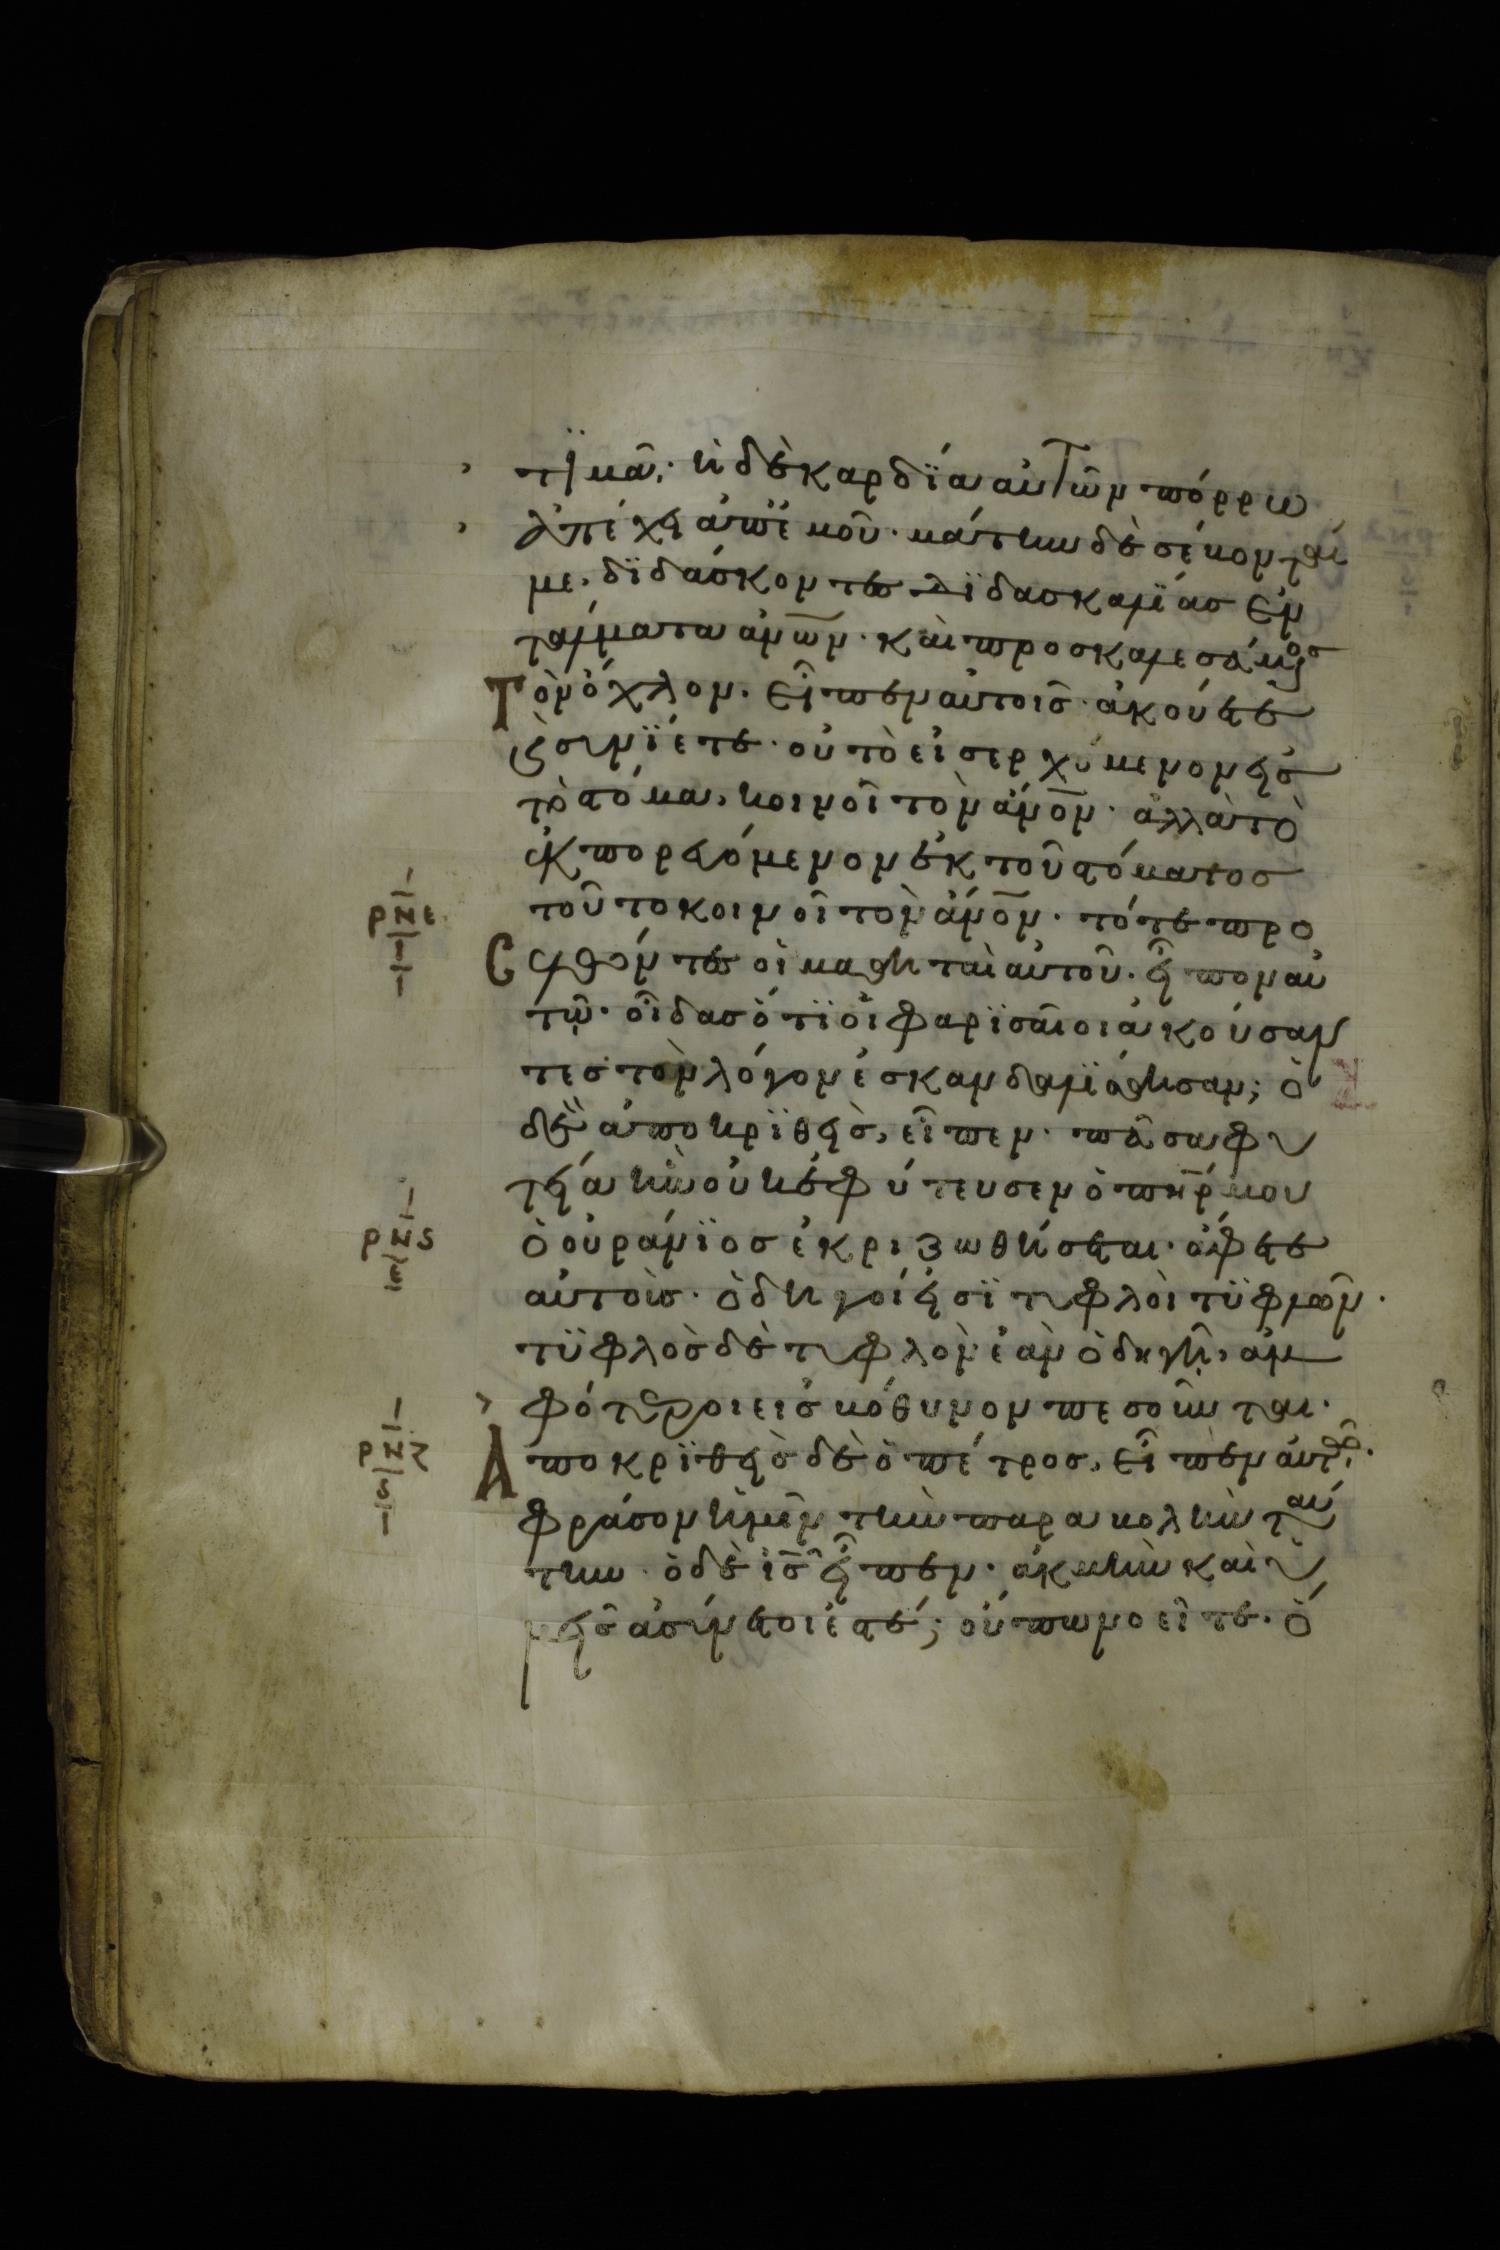 τιμᾶ· ἡ δὲ καρδΐα αὐτῶν πόρρω
ἀπέχει ἀπ̈ ἐμοῦ· μάτην δὲ σέβονταί
με, δϊδάσκοντες δϊδασκαλΐας ἐν
τάλματα ἀν̅ων· καὶ προσκαλεσάμενος
Τὸν ὄχλον. εἶπεν αὐτοῖς· ἀκούετε
καὶ συνΐετε· οὐ τὸ εἰσερχόμενον εἰς
τὸ στόμα, κοινοῖ τὸν ἄν̅ον· ἀλλὰ τὸ
ἐκπορευόμενον ἐκ τοῦ στόματος
ρνε τοῦτο κοινοῖ τὸν ἄν̅ον· τότε προ
Ϲελθόντες οἱ μαθηταὶ αὐτοῦ. εἶπον αὐ
τῷ· οἶδας ὅτϊ οἱ φαρϊσαῖοι ἀκούσαν
τες τὸν λόγον ἐσκανδαλΐσθησαν; ὁ
δὲ ἀποκρϊθεὶς, εἶπεν· πᾶσα φυ
τεία ἣν οὐκ ἐφύτευσεν ὁ π̅η̅ρ μου
ρνς ὁ οὐράνϊος ἐκριζωθήσεται· ἄφετε
αὐτοὺς· ὁδηγοί εἰσϊ τυφλοὶ τϋφλῶν·
τϋφλὸς δὲ τυφλὸν ἐὰν ὁδηγῆ, ἀμ
φότεροι εἰς βόθυνον πεσοῦνται·
ρνζ Ἀποκρϊθεὶς δὲ ὁ πέτρος, εἶπεν αὐτῶ·
φράσον ἡμῖν τὴν παραβολὴν ταύ
την· ὁ δὲ ι̅ς̅ εἶπεν· ἀκμὴν καὶ ὑ
μεῖς ἀσύνετοί ἐστέ; οὔπω νοεῖτε· ὁ